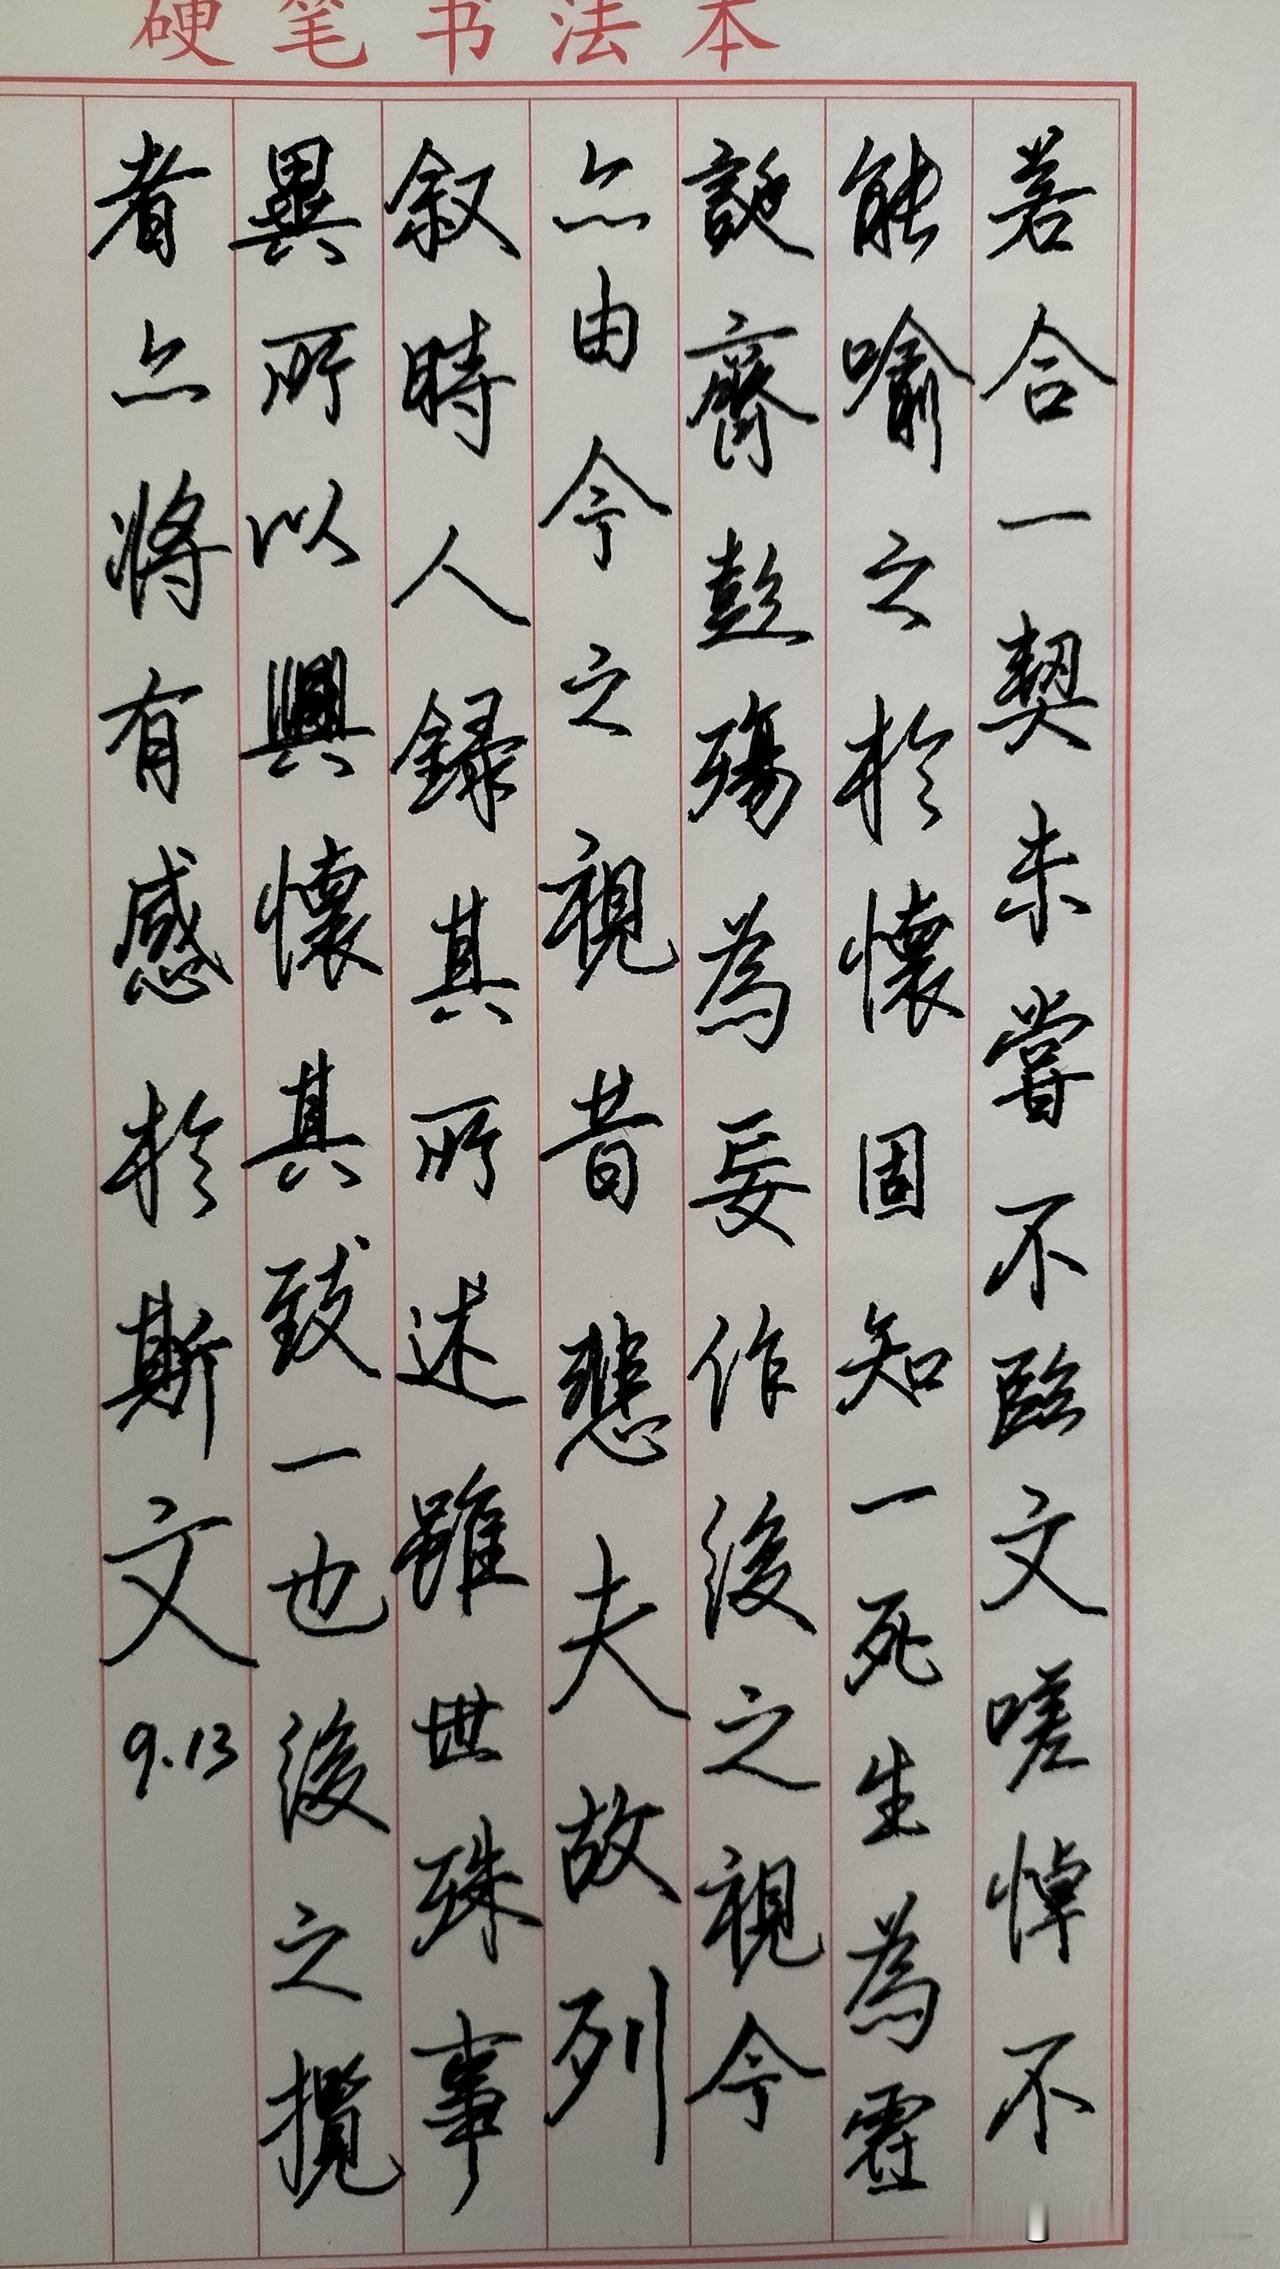 硬笔书法本
若合一契未甞不臨文嗟悼不
能喻之於懷固知一死生為虚
誕齊彭殤為妄作後之視今
亦由今之視昔悲夫故列
叙時人録其所述雖世殊事
異所以興懷其致一也後之攬
者亦將有感於斯文
9.13